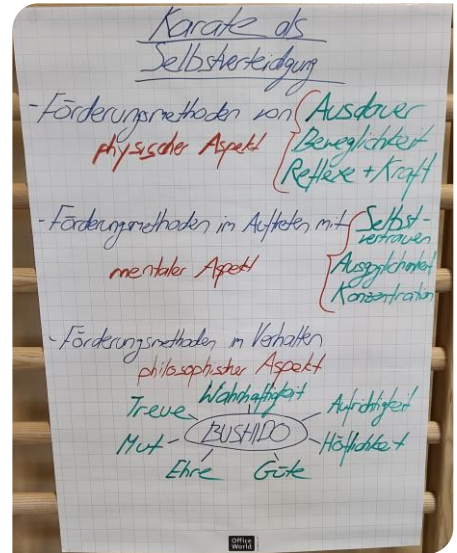 Karate als
Selbstverteidigung
- Förderungsmethoden von Ausdauer
physischer Aspekt Beweglichkeit
Reflexe + Kraft
- Förderungsmethoden im Auftreten mit Selbst-
vertrauen
mentaler Aspekt Ausgeglichenheit
Konzentration
- Förderungsmethoden im Verhalten
philosophischer Aspekt
Wahrhaftigkeit
Treue Aufrichtigkeit
Mut - BUSHIDO - Höflichkeit
Ehre Güte
Office
World